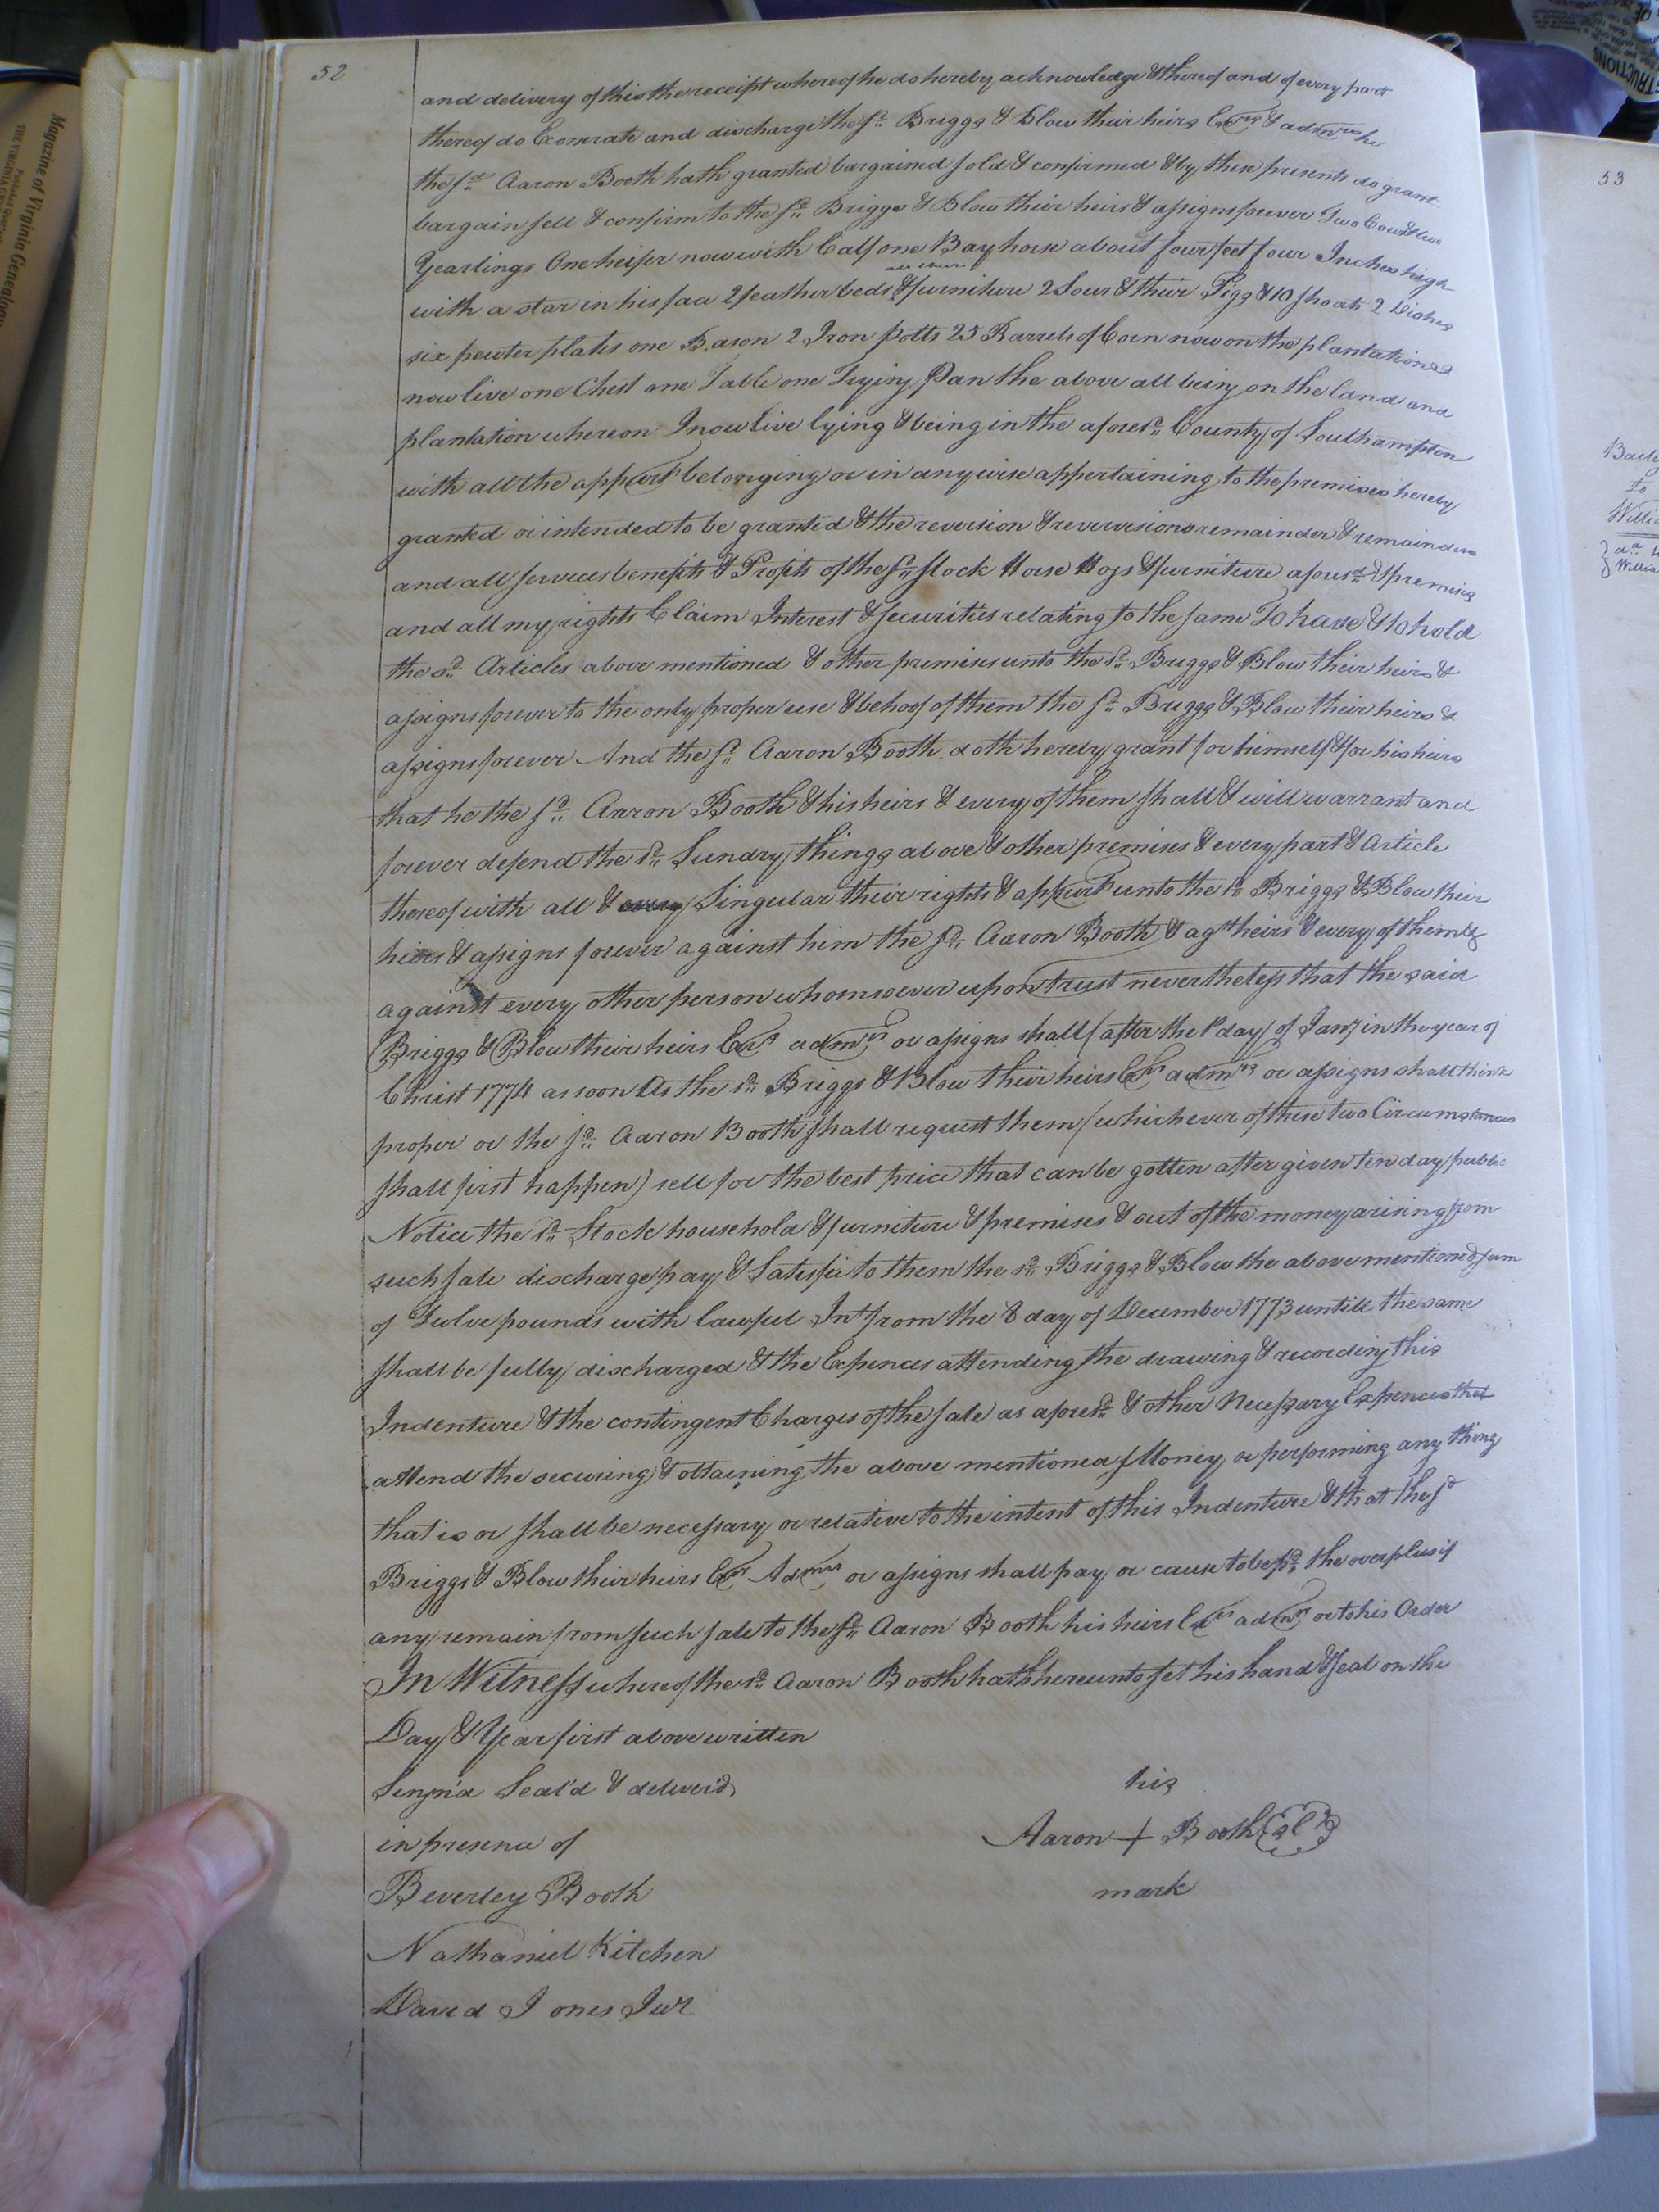 52
and delivery of this the receipt whereof he do hereby acknowledge & thereof and of every part
thereof do Exonerate and discharge the sd. Briggs & Blow their heirs Exrs & admrs he
the sd Aaron Booth hath granted bargained sold & confirmed & by these presents do grant
bargain sell & confirm to the sd. Briggs & Blow their heirs & assigns forever Two Cows & two
Yearlings One heifer now with Calf one Bay horse about four feet four Inches high
with a star in his face 2 feather beds & furniture 2 Sows & their Pigs & 10 shoats 2 Dishes
six pewter plates one Bason 2 Iron potts 25 Barrels of Corn now on the plantation
now live one Chest one Table one Frying Pan the above all being on the land and
plantation whereon I now Live lying & being in the aforesd. County of Southampton
with all the appurts belonging or in anywise appertaining to the premises hereby
granted or intended to be granted & the reversion & reversions remainder & remainders
and all services benefits & Profits of the sd. stock Horse Hogs & furniture aforesd. & premises
and all my rights Claim Interest & securities relating to the same To have & to hold
the sd. Articles above mentioned & other premises unto the sd. Briggs & Blow their heirs &
assigns forever to the only proper use & behoof of them the sd. Briggs & Blow their heirs &
assigns forever And the sd. Aaron Booth doth hereby grant for himself & for his heirs
that he the sd. Aaron Booth & his heirs & every of them shall & will warrant and
forever defend the sd. Sundry things above & other premises & every part & Article
thereof with all & every Singular their rights & appurts unto the sd. Briggs & Blow their
heirs & assigns forever against him the sd. Aaron Booth & agst heirs & every of them &
against every other person whomsoever upon trust nevertheless that the said
Briggs & Blow their heirs Exrs admrs or assigns shall (after the 1st day of Jany in the year of
Christ 1774 as soon As the sd. Briggs & Blow their heirs Exrs admrs or assigns shall think
proper or the sd. Aaron Booth shall request them (which ever of these two Circumstances
shall first happen) sell for the best price that can be gotten after given ten day public
Notice the sd. Stock household & furniture & premises & out of the money arising from
such sale discharge pay & Satisfie to them the sd. Briggs & Blow the above mentioned sum
of Twlve pounds with lawful Int from the 8 day of December 1773 untill the same
shall be fully discharged & the Expences attending the drawing & recording this
Indenture & the contingent Charges of the sale as aforesd. & other Necessary Expences that
attend the securing & obtaining the above mentioned Money or performing any thing
that is or shall be necessary or relative to the intent of this Indenture & that the sd
Briggs & Blow their heirs Exrs Admrs or assigns shall pay or cause to be pd. the overplus if
any remain from such sale to the sd. Aaron Booth his heirs Exrs admrs or to his Order
In Witness whereof the sd. Aaron Booth hath hereunto set his hand & seal on the
Day & Year first above written
Singn'd Seal'd & deliver'd
in presence of
Beverley Booth
Nathaniel Kitchen
David Jones Jur
his
Aaron + Booth
mark
53
to
Magazine of Virginia Genealogy